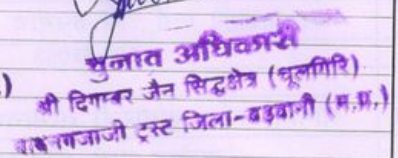 चुनाव अधिकारी
श्री दिगम्बर जैन सिद्धक्षेत्र (चूलगिरि)
बावनगजाजी ट्रस्ट जिला-बड़वानी (म.प्र.)